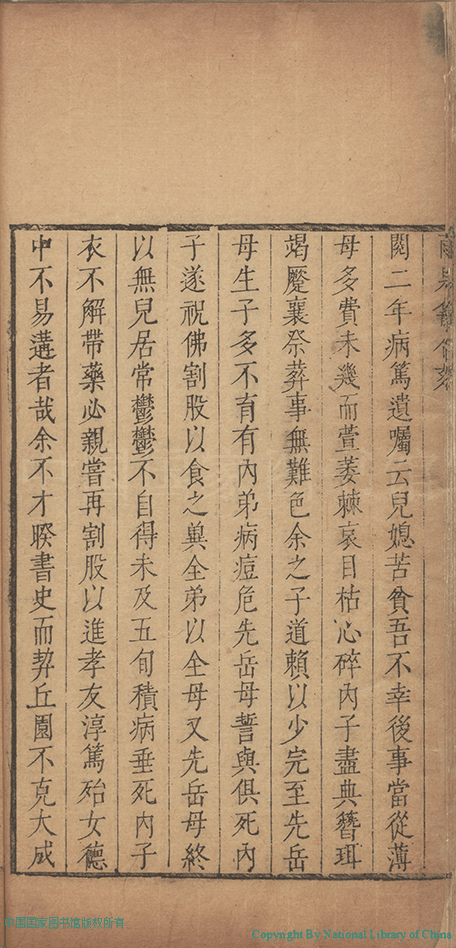 閱二年病篤遺囑云兒媳苦貧吾不幸後事當從薄
母多費未幾而萱萎棘哀目枯心碎內子盡典簪珥
竭蹷襄祭葬事無難色余之子道賴以少完至先岳
母生子多不育有內弟病痘危先岳母誓與俱死內
子遂祝佛割股以食之兾全弟以全母又先岳母終
以無兒居常鬱鬱不自得未及五旬積病垂死內子
衣不解帶藥必親嘗再割股以進孝友淳篤殆女德
中不易遘者哉余不才睽書史而契丘園不克大成
中国国家图书馆版权所有
Copyright By National Library of China